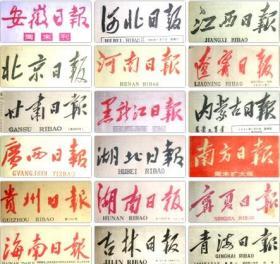 安徽日報
周末刊
河北日报
HEBEI RIBAO
江西日报
JIANGXI RIBAO
北京日报
河南日報
HENAN RIBAO
遼寧日報
LIAONING RIBAO
甘肃日报
GANSU RIBAO
黑龍江日報
内蒙古日報
廣西日報
GVANGJSIH YIZBAU
湖北日報
HUBEI RIBAO
南方日報
周末扩大版
貴州日報
GUIZHOU RIBAO
湖南日報
HUNAN RIBAO
寧夏日報
NINGXIA RIBAO
海南日報
HAINAN RIBAO
吉林日報
JILIN RIBAO
青海日報
QINGHAI RIBAO